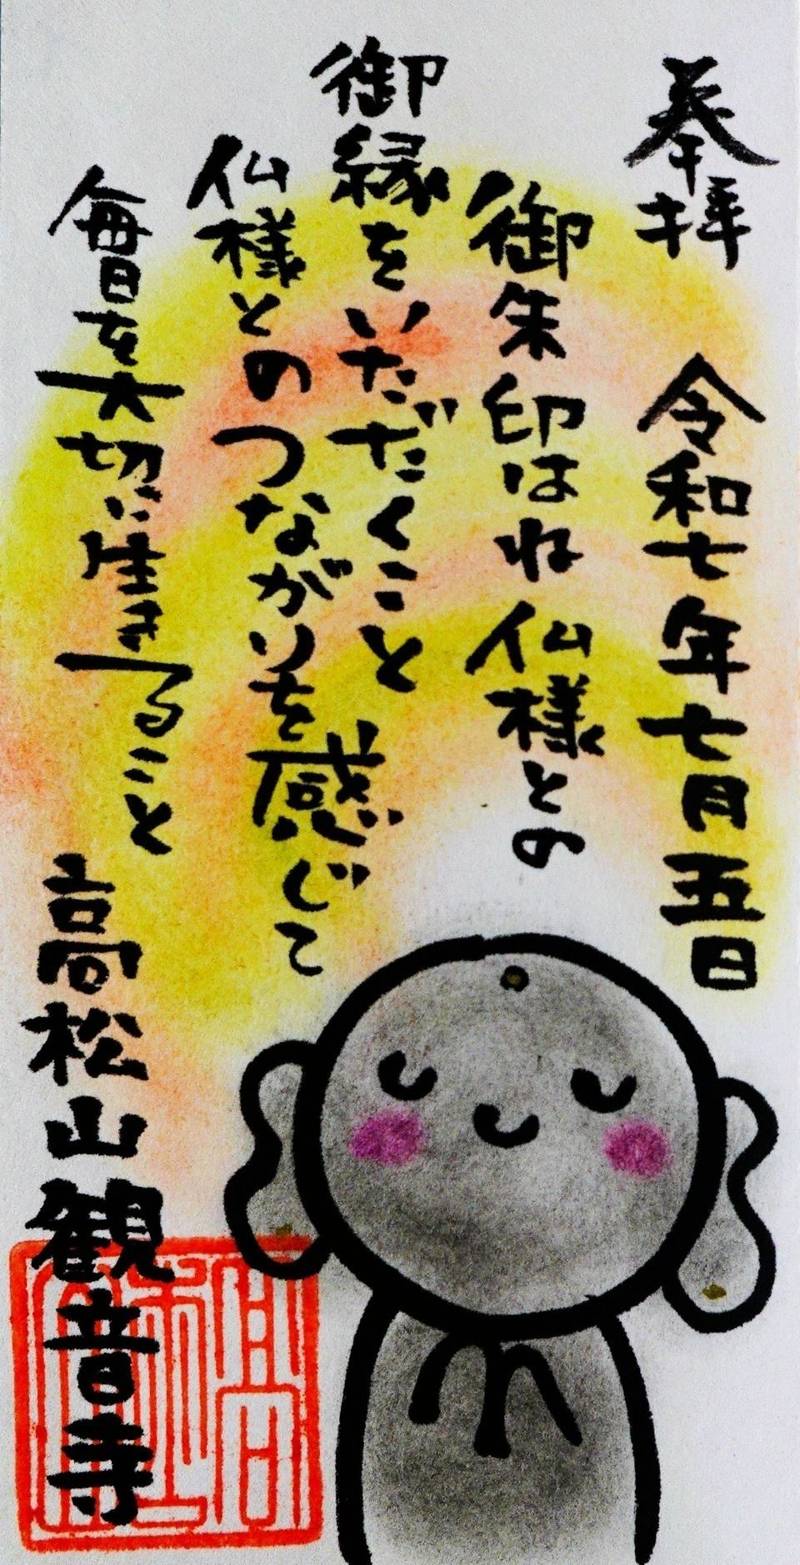 奉拝
令和七年七月五日
御朱印はね 仏様との
御縁をいただくこと
仏様とのつながりを感じて
毎日を大切に生きること
高松山観音寺